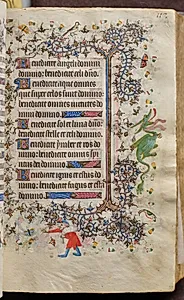 Benedicite angeli domini
domino: benedicite celi dño.
Benedicite aque omnes
que super celos sunt domino:
benedicite omnes uirtutes do
mini domino.
Benedicite sol et luna domino:
benedicite stelle celi domino.
Benedicite ymber et ros do
mino: benedicite omnis spi
ritus dei domino.
Benedicite ignis et estus do
mino: benedicite frigus et estus